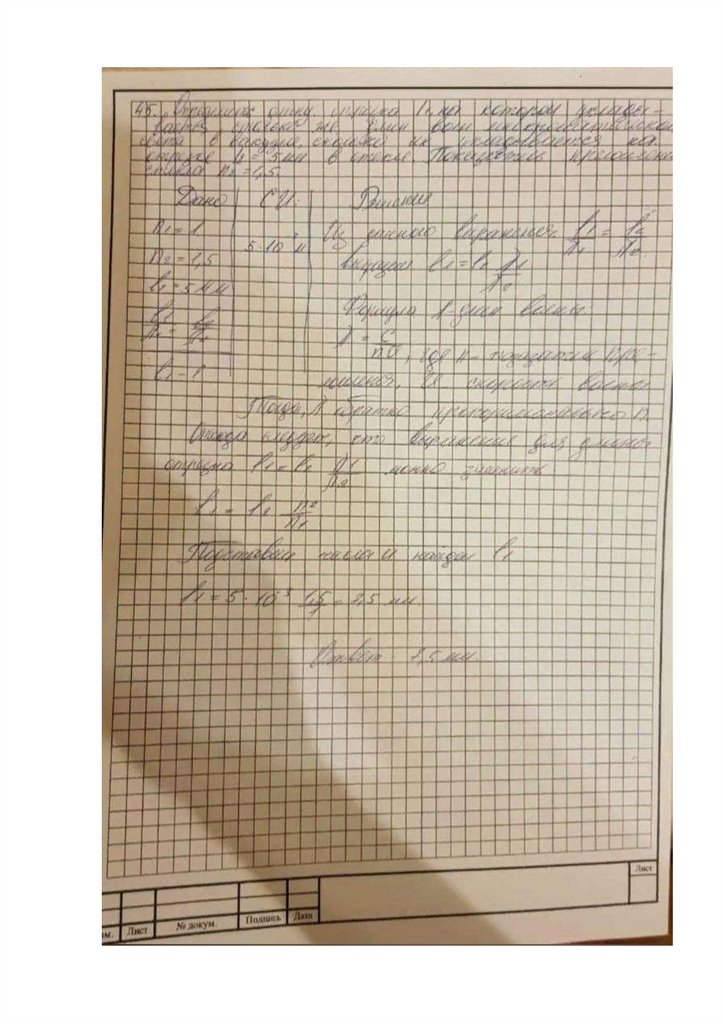 45. длину отрезка l₁, на котором укладыва-
ется столько же длин волн монохроматического
света в вакууме, сколько их укладывается на
отрезке l₂ = 5 мм в стекле. Показатель преломления
стекла n₂ = 1,5.
Дано СИ: Решение
n₁ = 1 5·10⁻³ м Из данного выражения l₁/λ₁ = l₂/λ₂
n₂ = 1,5 l₁ = l₂ λ₁/λ₂
l₂ = 5 мм
l₁/λ₁ = l₂/λ₂ Формула λ - длин волны
λ = , где n - показатель пре-
l₁ - ? ломления, скорость волны
Тогда, λ обратно пропорционально n.
Отсюда следует, что выражение для длины
отрезка l₁ = l₂ λ₁/λ₂ можно заменить
l₁ = l₂ n₂/n₁
Подставим числа и найдем l₁
l₁ = 5 · 10⁻³ · 1,5/1 = 7,5 мм.
Ответ: 7,5 мм.
Лист
Лист № докум. Подпись Дата